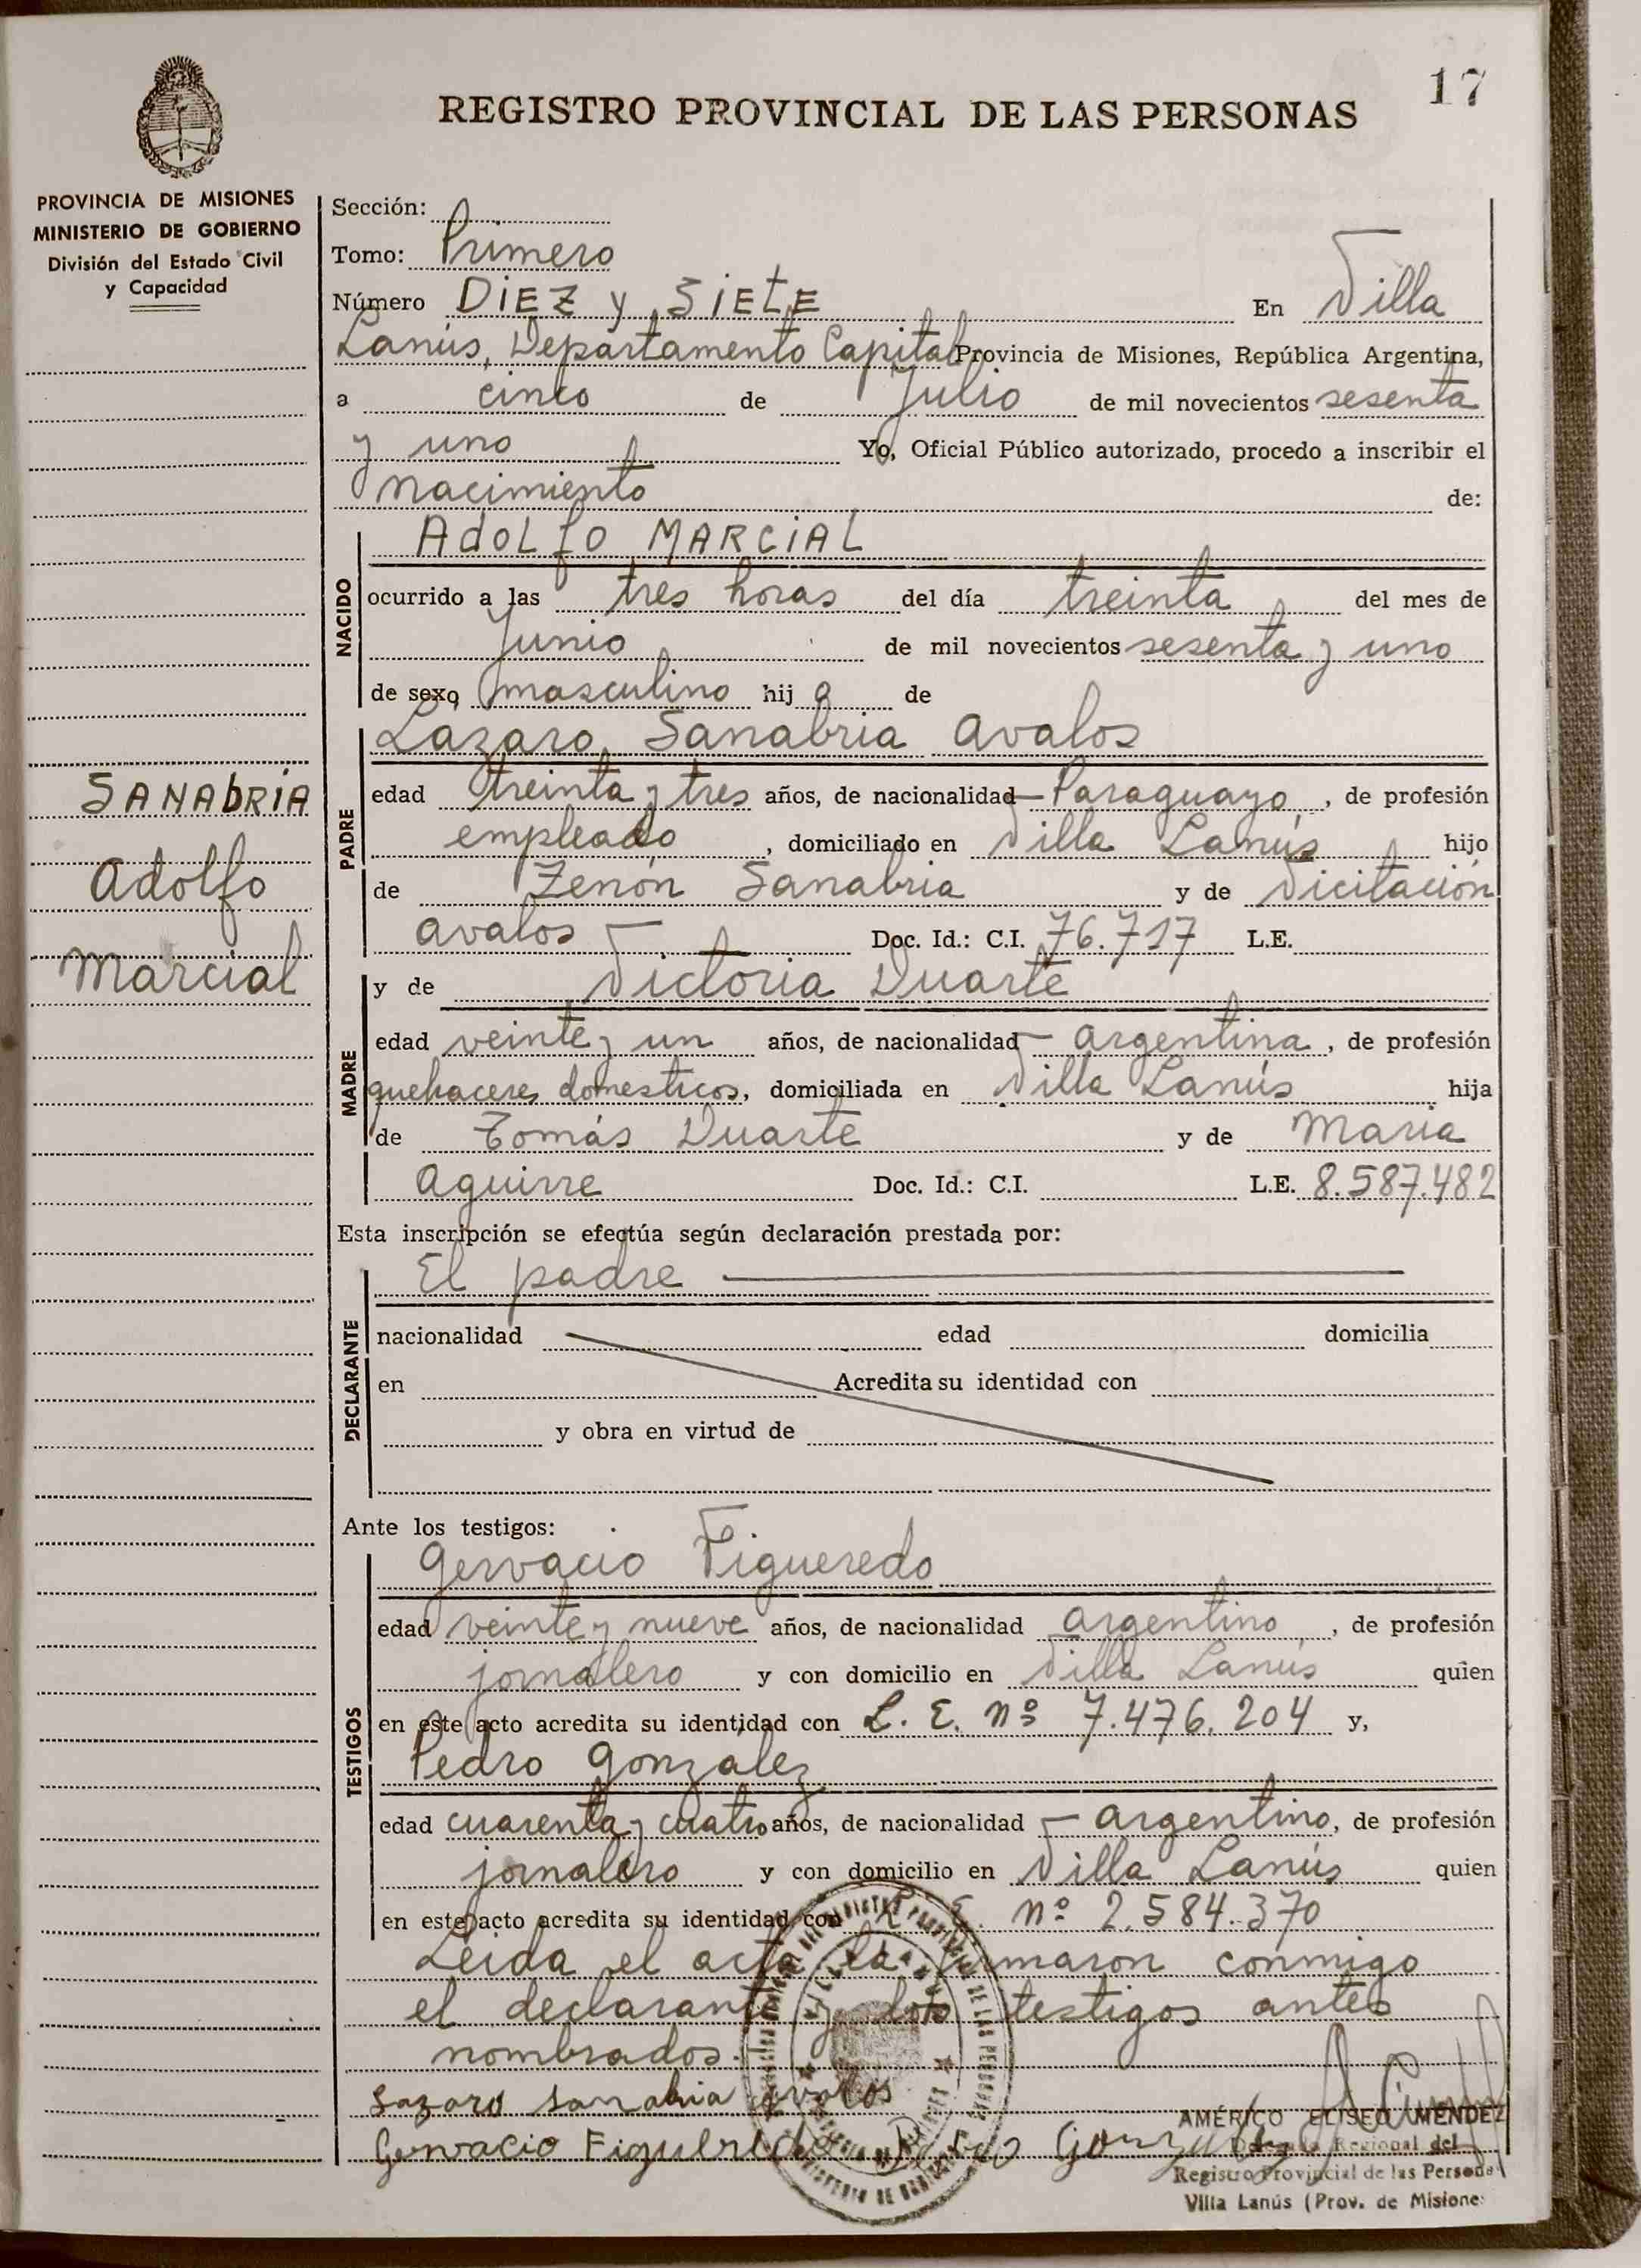 17
REGISTRO PROVINCIAL DE LAS PERSONAS
PROVINCIA DE MISIONES
MINISTERIO DE GOBIERNO
División del Estado Civil
y Capacidad
SANAbRIA
Adolfo
Marcial
Sección:
Tomo: Primero
Número DiEZ y SiEtE En Villa
Lanús, Departamento Capital Provincia de Misiones, República Argentina,
a cinco de Julio de mil novecientos sesenta
y uno Yo, Oficial Público autorizado, procedo a inscribir el
nacimiento de:
NACIDO
AdOLfO MARCiAL
ocurrido a las tres horas del día treinta del mes de
Junio de mil novecientos sesenta y uno
de sexo masculino hijo de
PADRE
Lazaro Sanabria Avalos
edad treinta y tres años, de nacionalidad Paraguayo, de profesión
empleado, domiciliado en Villa Lanús hijo
de Zenón Sanabria y de Vicitación
Avalos Doc. Id.: C.I. 76.717 L.E.
MADRE
y de Victoria Duarte
edad veinte y un años, de nacionalidad Argentina, de profesión
quehaceres domesticos, domiciliada en Villa Lanús hija
de Tomás Duarte y de Maria
Aguirre Doc. Id.: C.I. L.E. 8.587.482
Esta inscripción se efectúa según declaración prestada por:
DECLARANTE
El padre
nacionalidad edad domicilia
en Acredita su identidad con
y obra en virtud de
Ante los testigos:
TESTIGOS
Gervacio Figueredo
edad veinte y nueve años, de nacionalidad Argentino, de profesión
jornalero y con domicilio en Villa Lanús quien
en este acto acredita su identidad con L. E. nº 7.476.204 y,
Pedro Gonzalez
edad cuarenta y cuatro años, de nacionalidad Argentino, de profesión
jornalero y con domicilio en Villa Lanús quien
en este acto acredita su identidad con L. E. nº 2.584.370
Leida el acta la firmaron conmigo
el declarante y los testigos antes
nombrados.
Lazaro Sanabria Avalos
Gervacio Figueredo Pedro Gonzalez
AMÉRICO ELISEO MENDEZ
Delegado Regional del
Registro Provincial de las Persona
Villa Lanús (Prov. de Misione